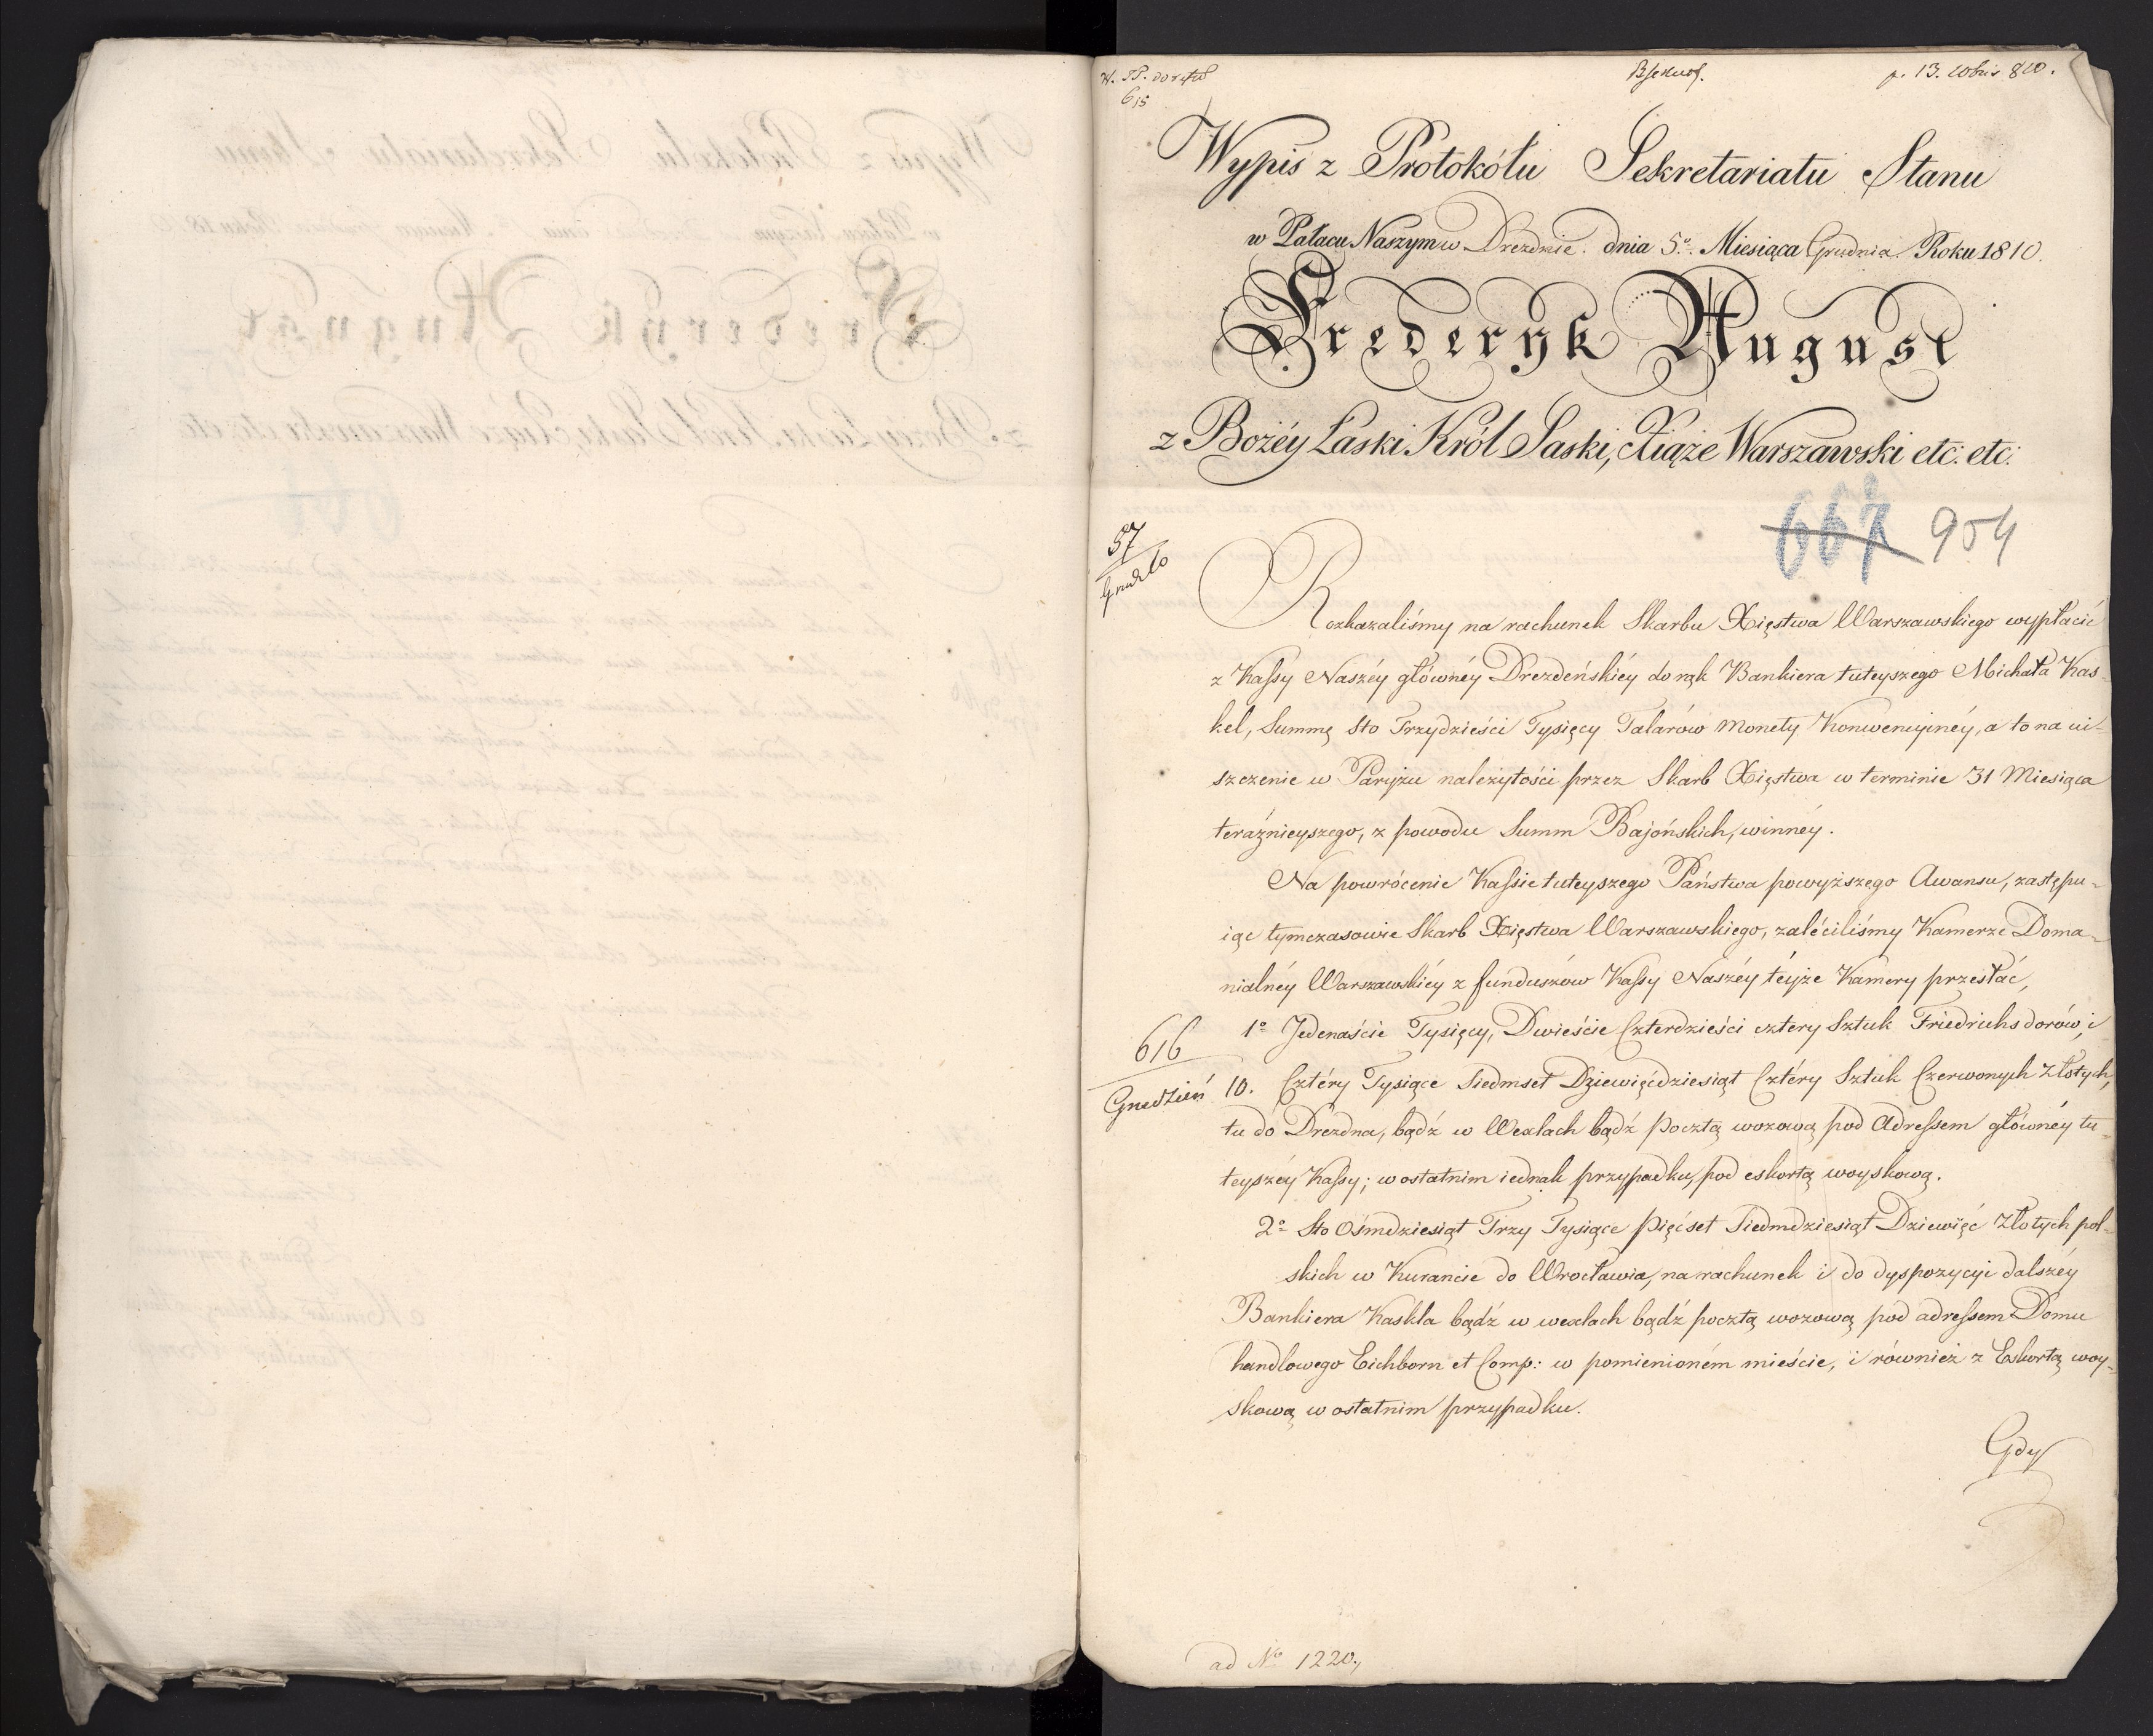 p. 13. Xbris 810.
615
Wypis z Protokółu Sekretariatu Stanu
w Pałacu Naszym w Dreznie. dnia 5º. Miesiąca Grudnia. Roku 1810.
Frederyk August
z Bożéy Łaski Król Saski, Xiąże Warszawski etc: etc:
667 904
57
Grud. 10
Rozkazaliśmy na rachunek Skarbu Xięstwa Warszawskiego wypłacić
z Kassy Naszéy głównéy Drezdeńskiéy do rąk Bankiera tuteyszego Michała Kas-
kel, Summę Sto Trzydzieści Tysięcy Talarów Monety Konwencyinéy, a to na ui-
szczenie w Paryżu należytości przez Skarb Xięstwa w terminie 31 Miesiąca
teraźnieyszego, z powodu Summ Bajońskich, winnéy.
Na powrócenie Kassie tuteyszego Państwa powyższego Awansu, zastępu-
iąc tymczasowie Skarb Xięstwa Warszawskiego, zaléciliśmy Kamerze Doma-
nialnéy Warszawskiéy z funduszów Kassy Naszéy téyże Kamery przesłać,
1º Jedenaście Tysięcy, Dwieście Czterdzieści cztery Sztuk Friedrichsdorów, i
616
Grudzień 10. Cztéry Tysiące Siedmset Dziewięćdziesiąt Cztéry Sztuk Czerwonych Złotych,
tu do Drezdna, bądź w Wexlach bądź Pocztą wozową pod Adressem główney tu-
teyszéy Kassy; w ostatnim iednak przypadku, pod eskortą woyskową.
2º Sto Ośmdziesiąt Trzy Tysiące Pięćset Siedmdziesiąt Dziewięć Złotych pol-
skich w Kurancie do Wrocławia, na rachunek i do dyspozycyi dalszéy
Bankiera Kaskla bądź w wexlach bądź pocztą wozową pod adressem Domu
handlowego Eichborn et Comp: w pomienioném mieście, i również z Eskortą woy-
skową w ostatnim przypadku.
Gdy
ad Nº 1220.